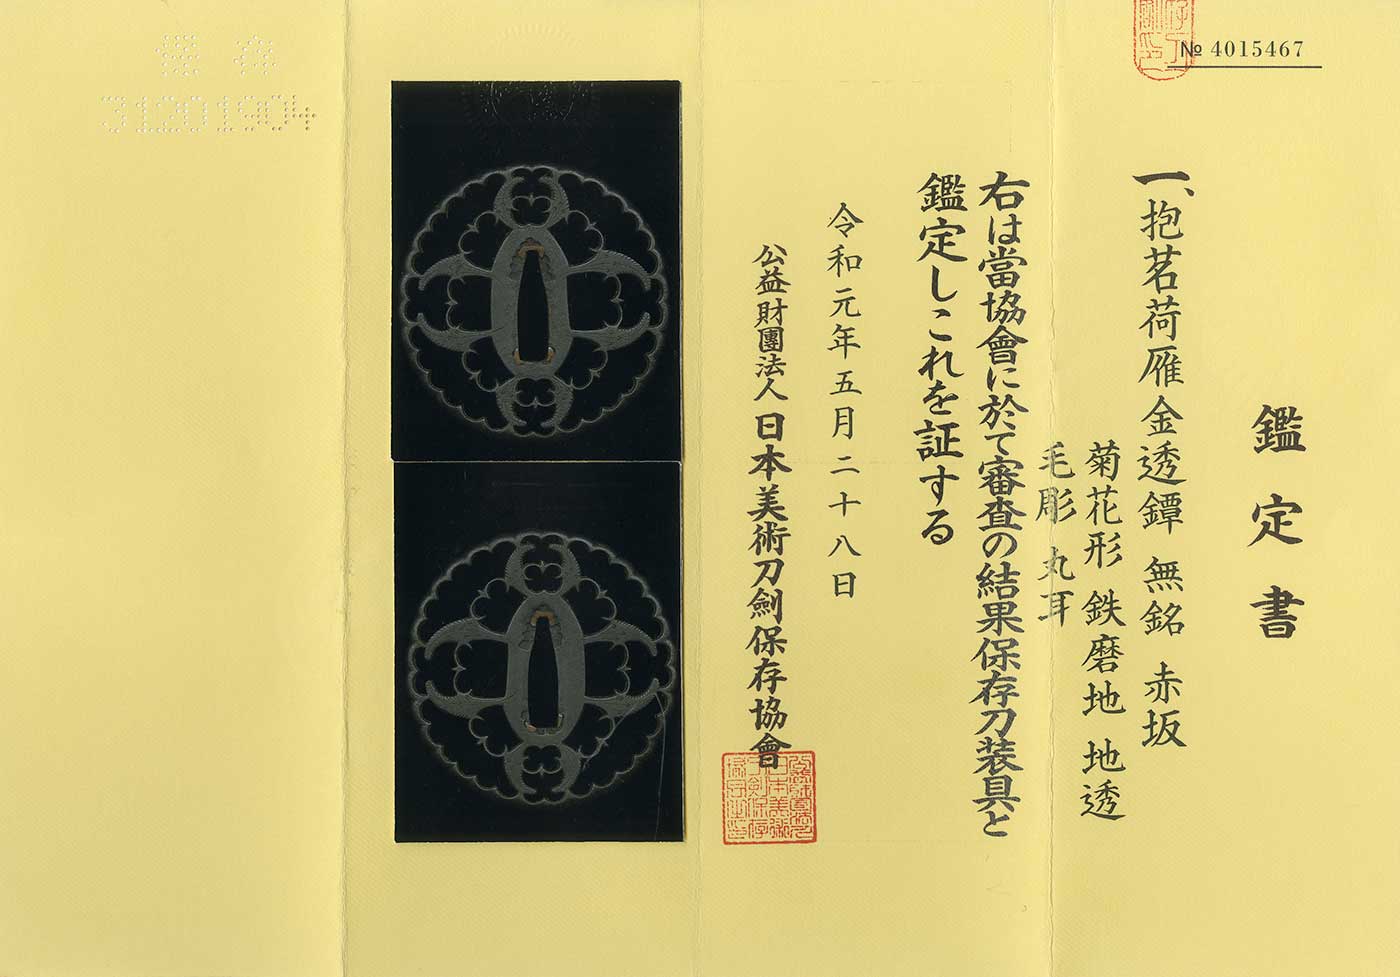 № 4015467
鑑定書
一、抱茗荷雁金透鐔 無銘 赤坂
菊花形 鉄磨地 地透
毛彫 丸耳
右は當協會に於て審査の結果保存刀装具と
鑑定しこれを証する
令和元年五月二十八日
公益財團法人 日本美術刀劍保存協會
31201904